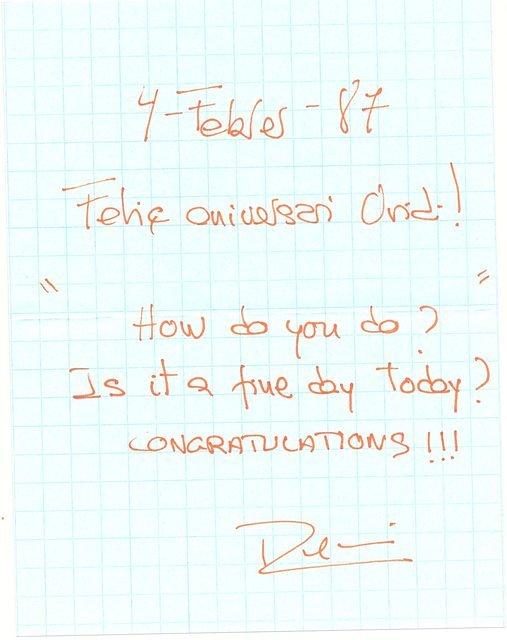 4-Febrer-87
Feliç aniversari Ovidi!
"
"
How do you do?
Is it a fine day today?
CONGRATULATIONS!!!